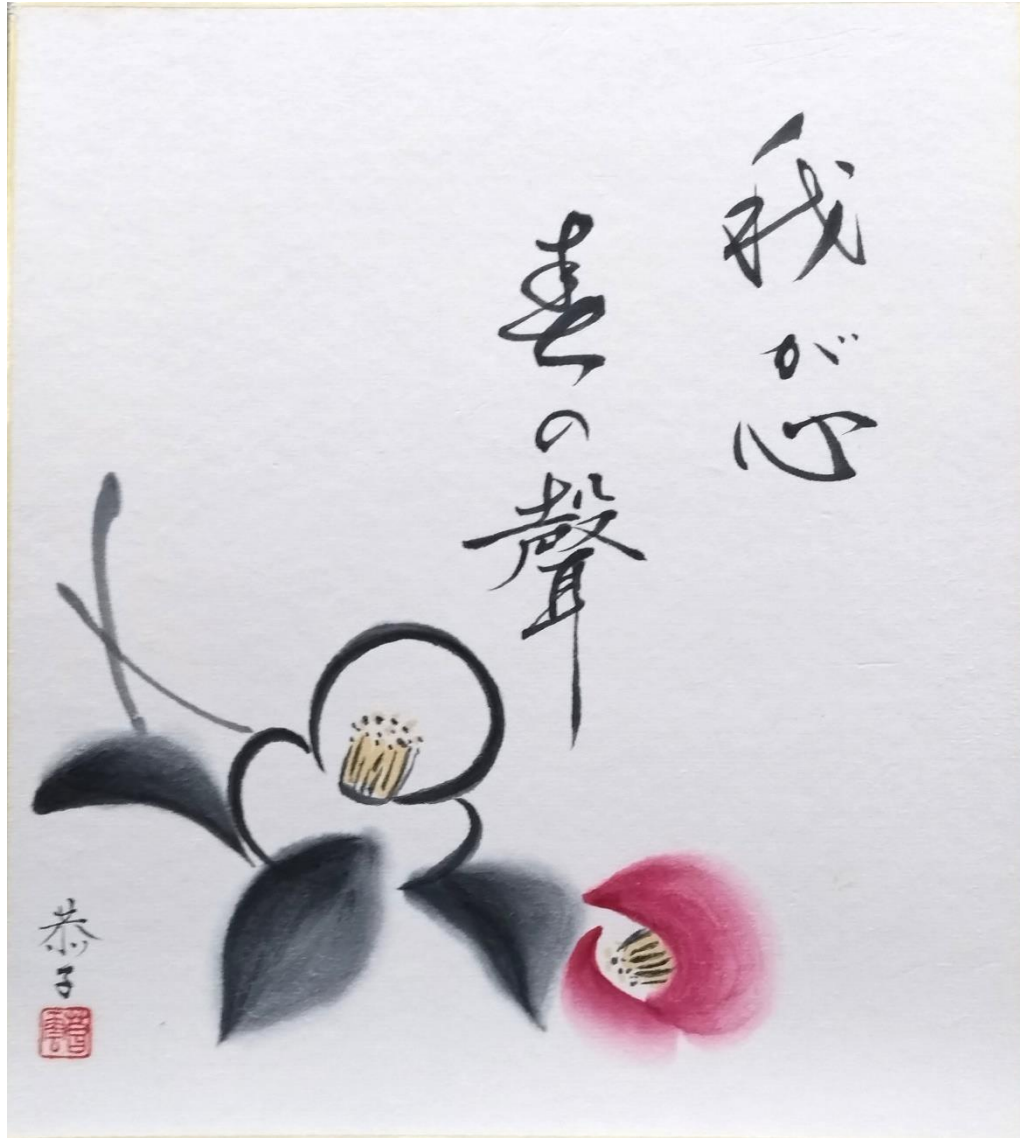 我が心
春の聲
恭子